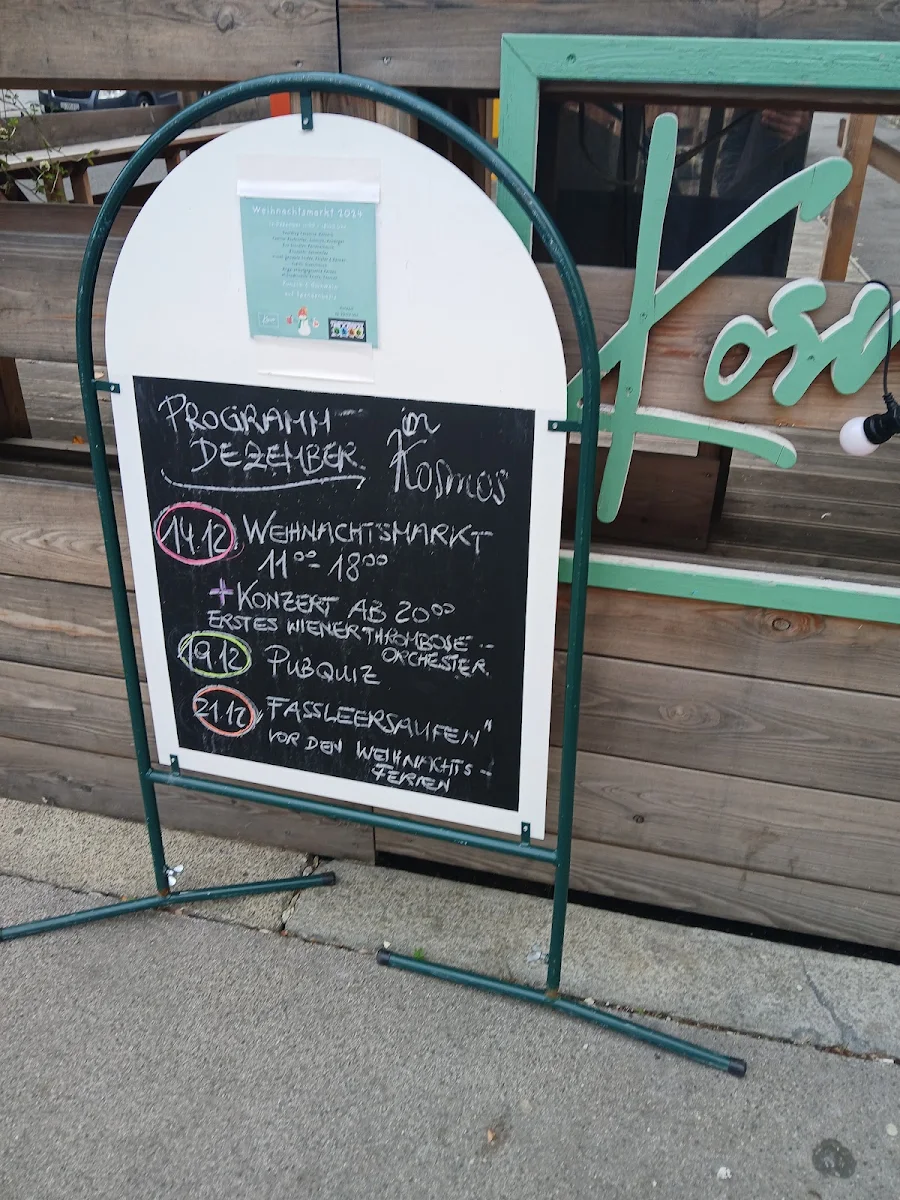 Weihnachtsmarkt 2024
Punsch & Glühwein
PROGRAMM
DEZEMBER
im
Kosmos
14.12 WEIHNACHTSMARKT
11⁰⁰- 18⁰⁰
+ KONZERT AB 20⁰⁰
ERSTES WIENER THROMBOSE-
ORCHESTER
19.12 PUBQUIZ
21.12 FASSLEERSAUFEN"
VOR DEN WEIHNACHTS-
FERIEN
Kosm